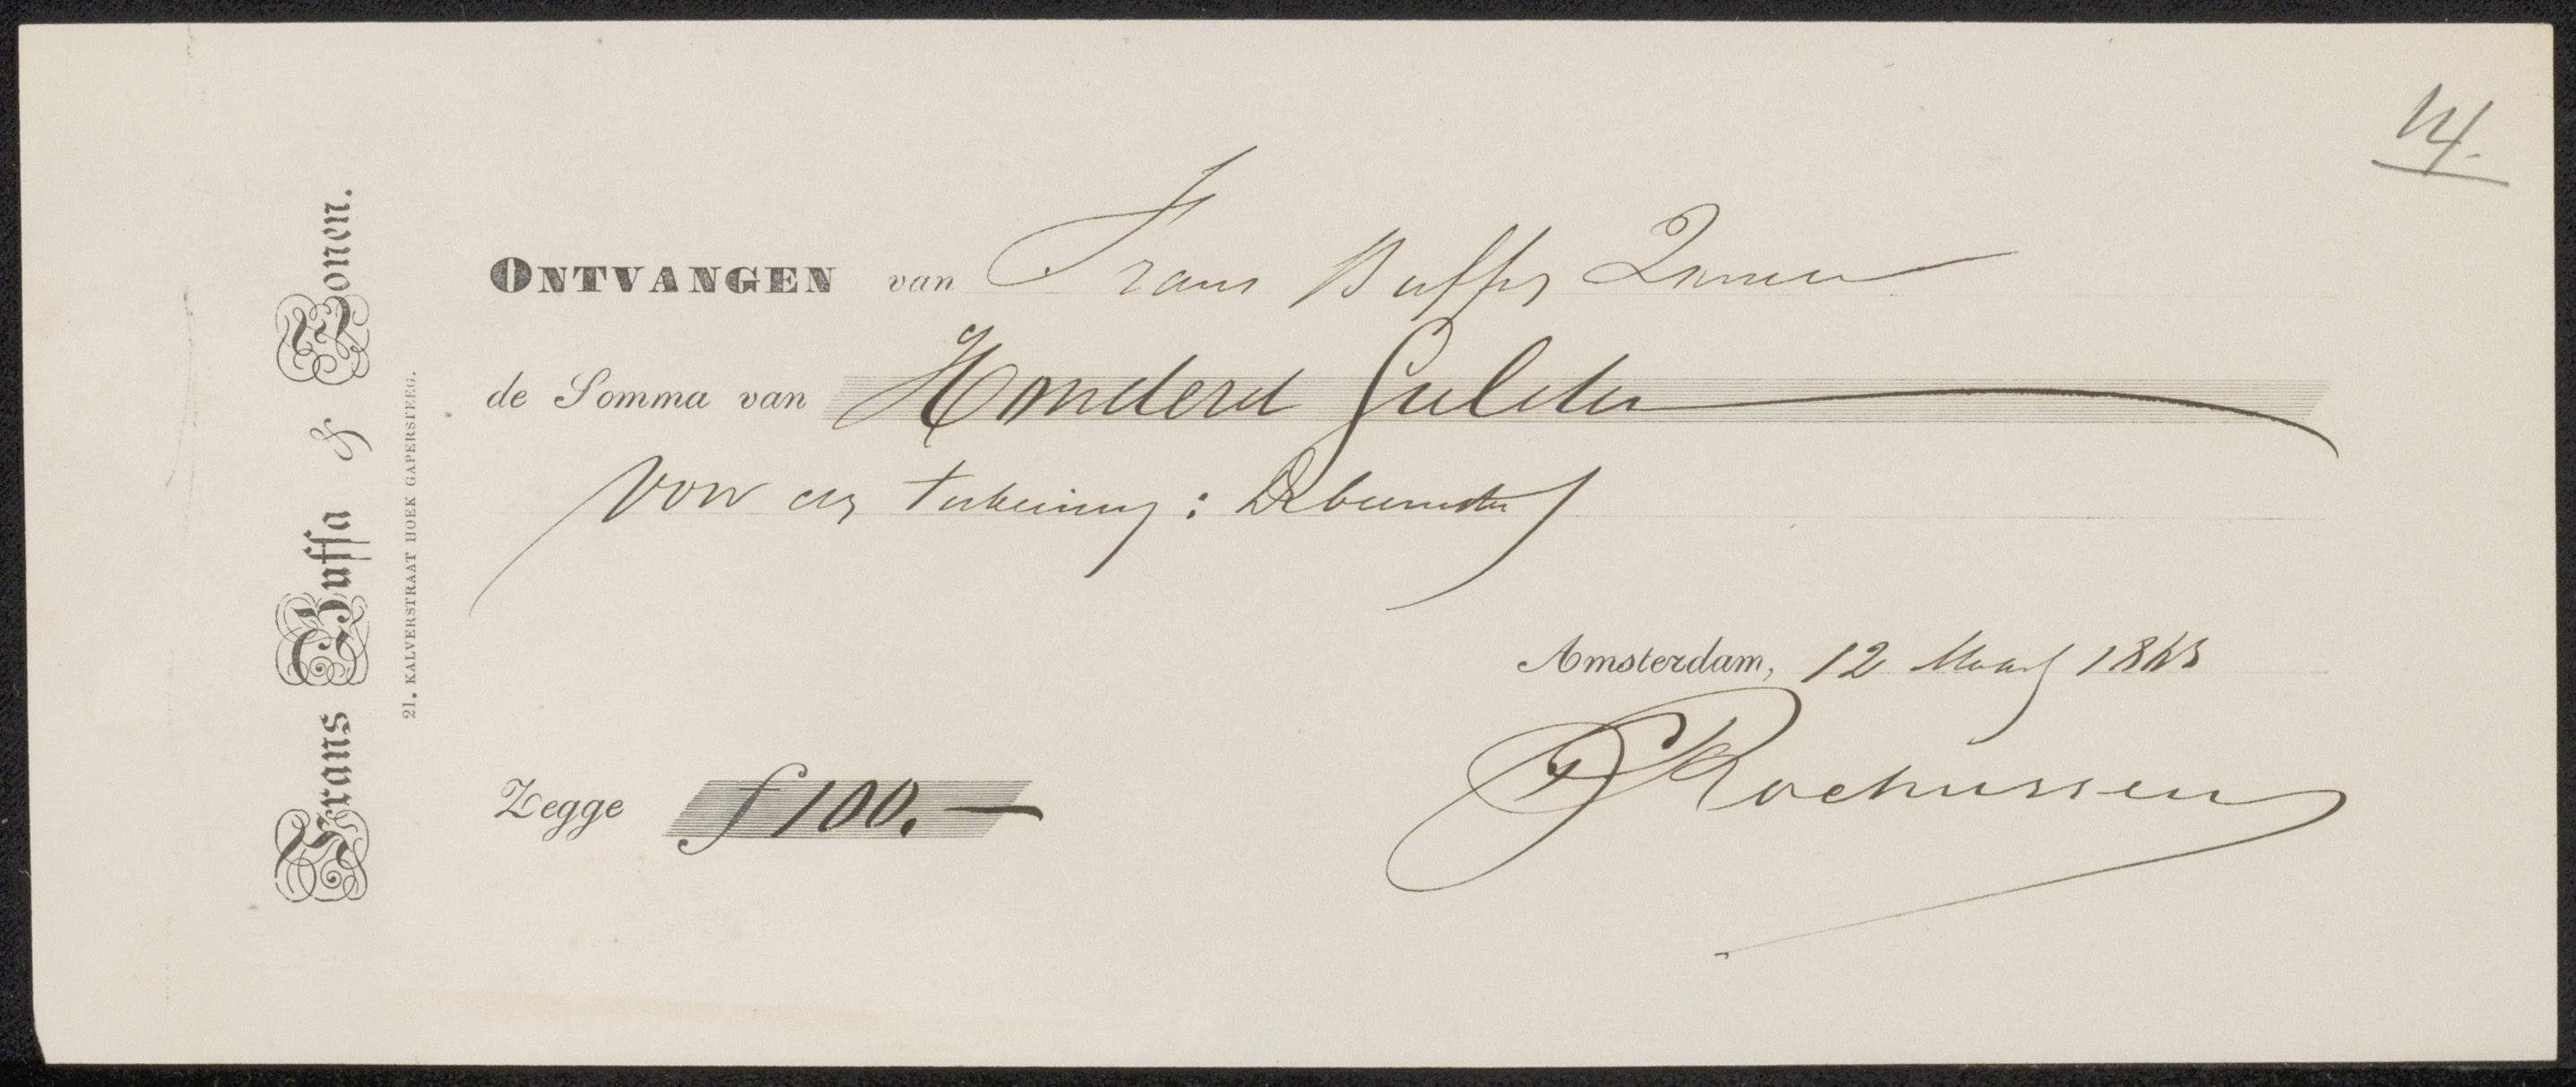 14.
Frans Buffa & Zonen.
21. KALVERSTRAAT HOEK GAPERSTEEG.
ONTVANGEN van Frans Buffa Zonen
de Somma van Honderd Gulden
Voor een teekening:
Amsterdam, 12 Maart
Zegge f 100.—
Rochussen